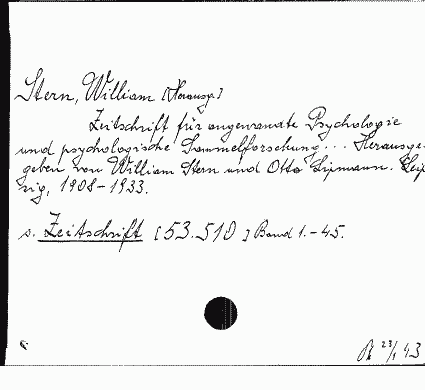 Stern, William [Herausg.]
Zeitschrift für angewandte Psychologie
und psychologische Sammelforschung... Herausge-
geben von William Stern und Otto Lipmann. Leip
zig, 1908-1933.
s. Zeitschrift [53.510] Band 1.-45.
23/1 43